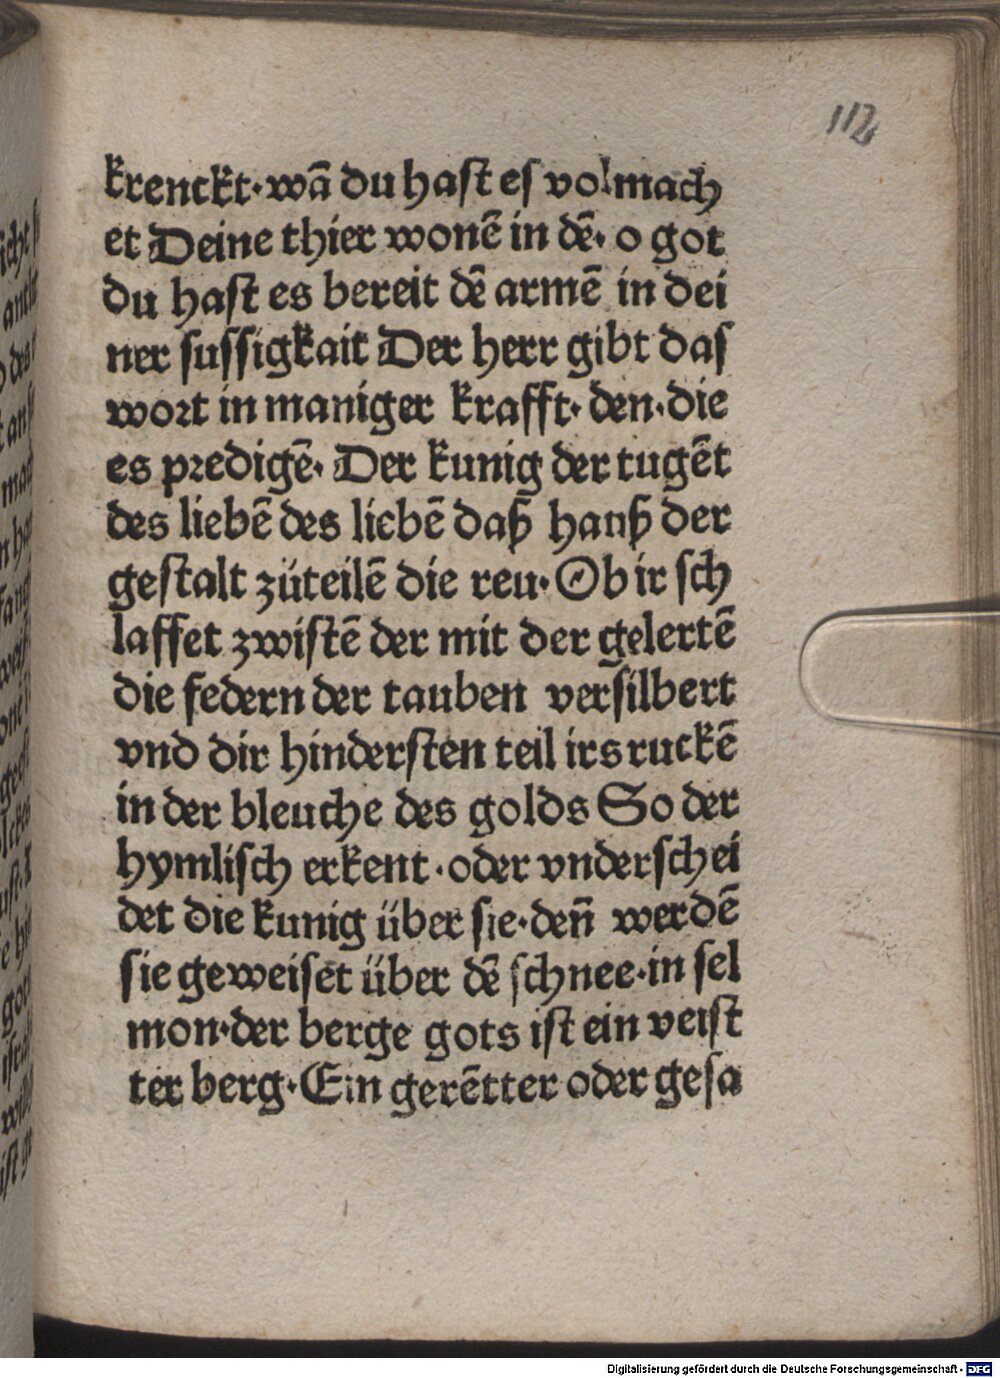 112
krenckt·wā du haſt eſ volmach
et Deine thier wonē in dē· o got
du haſt es bereit dē armē in dei
ner ſuſſigkait Der herr gibt daſ
wort in maniger krafft· den·die
es predigē· Der kunig der tugēt
des liebē des liebē daß hauß der
geſtalt zůteilē die reu· Ob ir ſch
laffet zwiſtē der mit der gelertē
die federn der tauben verſilbert
vnd dir hinderſten teil irs ruckē
in der bleuche des golds So der
hymliſch erkent·oder vnderſchei
det die kunig über ſie·den̄ werdē
ſie geweiſet über dē ſchnee·in ſel
mon·der berge gots iſt ein veiſt
ter berg·Ein gerētter oder geſa
Digitalisierung gefördert durch die Deutsche Forschungsgemeinschaft - DFG